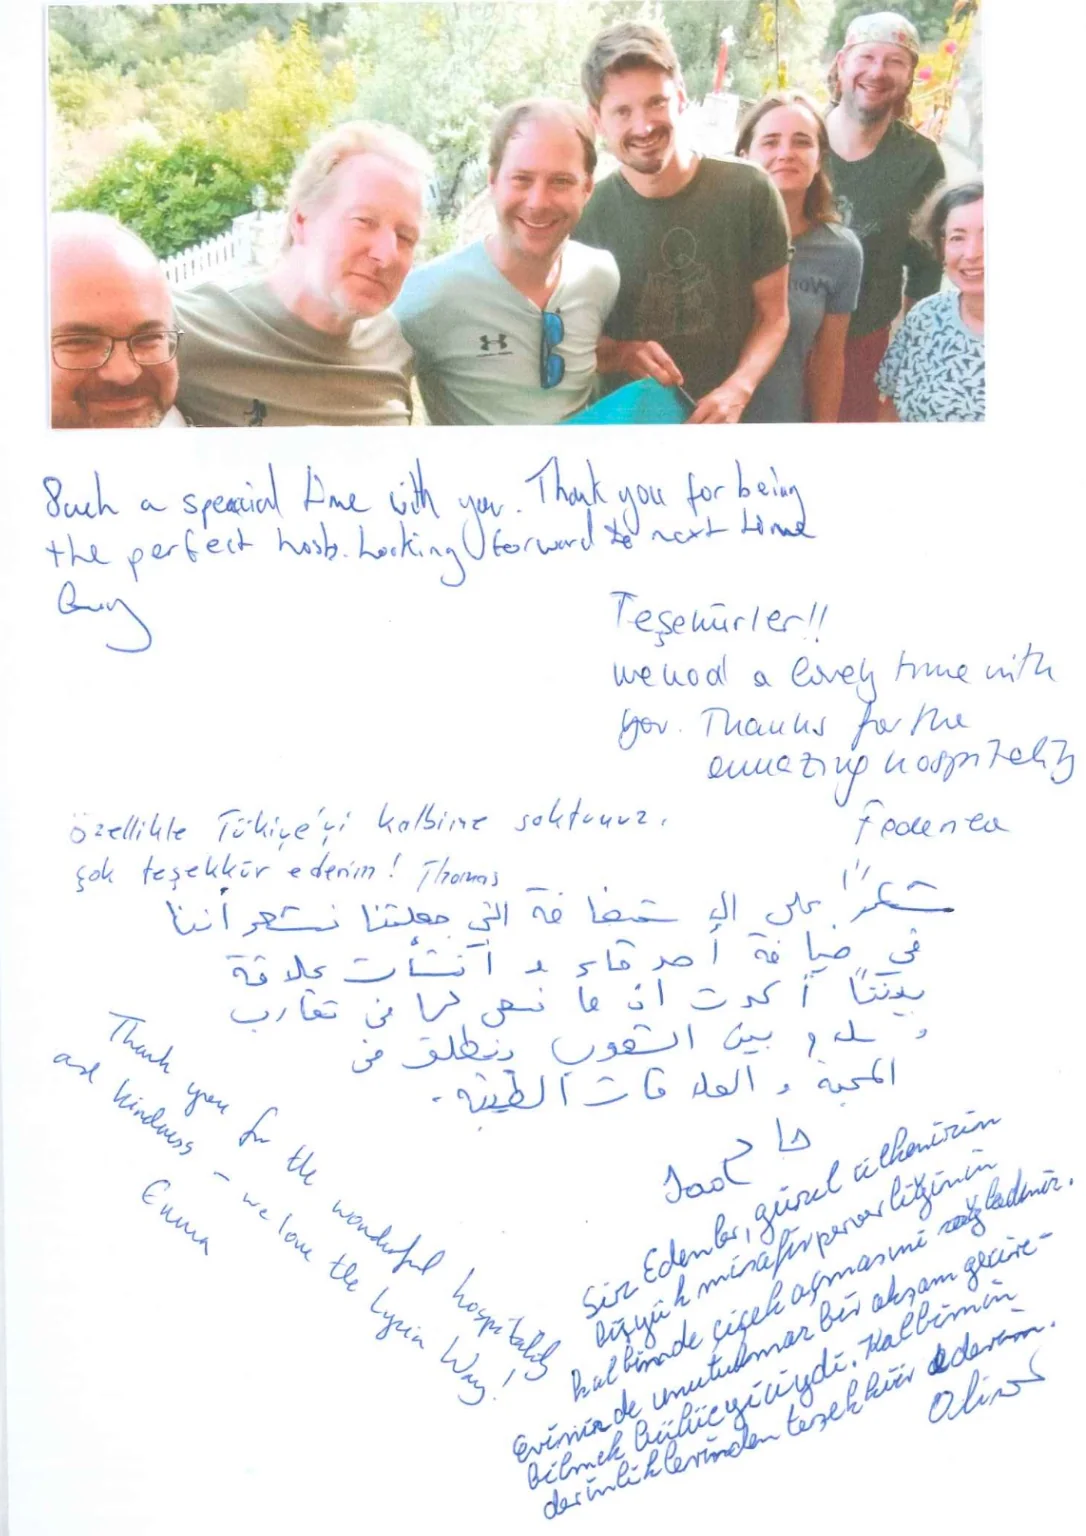 Such a special time with you. Thank you for being
the perfect host. Looking forward to next time
Guy
Teşekürler!!
we had a lovely time with
you. Thanks for the
amazing hospitality
Federica
özellikle Türkiye'yi kalbime soktunuz.
çok teşekkür ederim! Thomas
شكرًا على الاستضافة التي جعلتنا نشعر أننا
في ضيافة أصدقاء و أنشأت علاقة
بيننا أكدت ان ما نسعى له في تقارب
و سلام بين الشعوب ينطلق من
المحبة و العلاقات الطيبة.
Thank you for the wonderful hospitality
and kindness – we love the Lycian Way!
Emma
Siz Edenler, güzel ülkenizin
büyük misafirperverliğinin
kalbimde çiçek açmasını sağladınız.
Evinizde unutulmaz bir akşam geçire-
bilmek büyüleyiciydi. Kalbimin
derinliklerinden teşekkür ederim.
Oliver